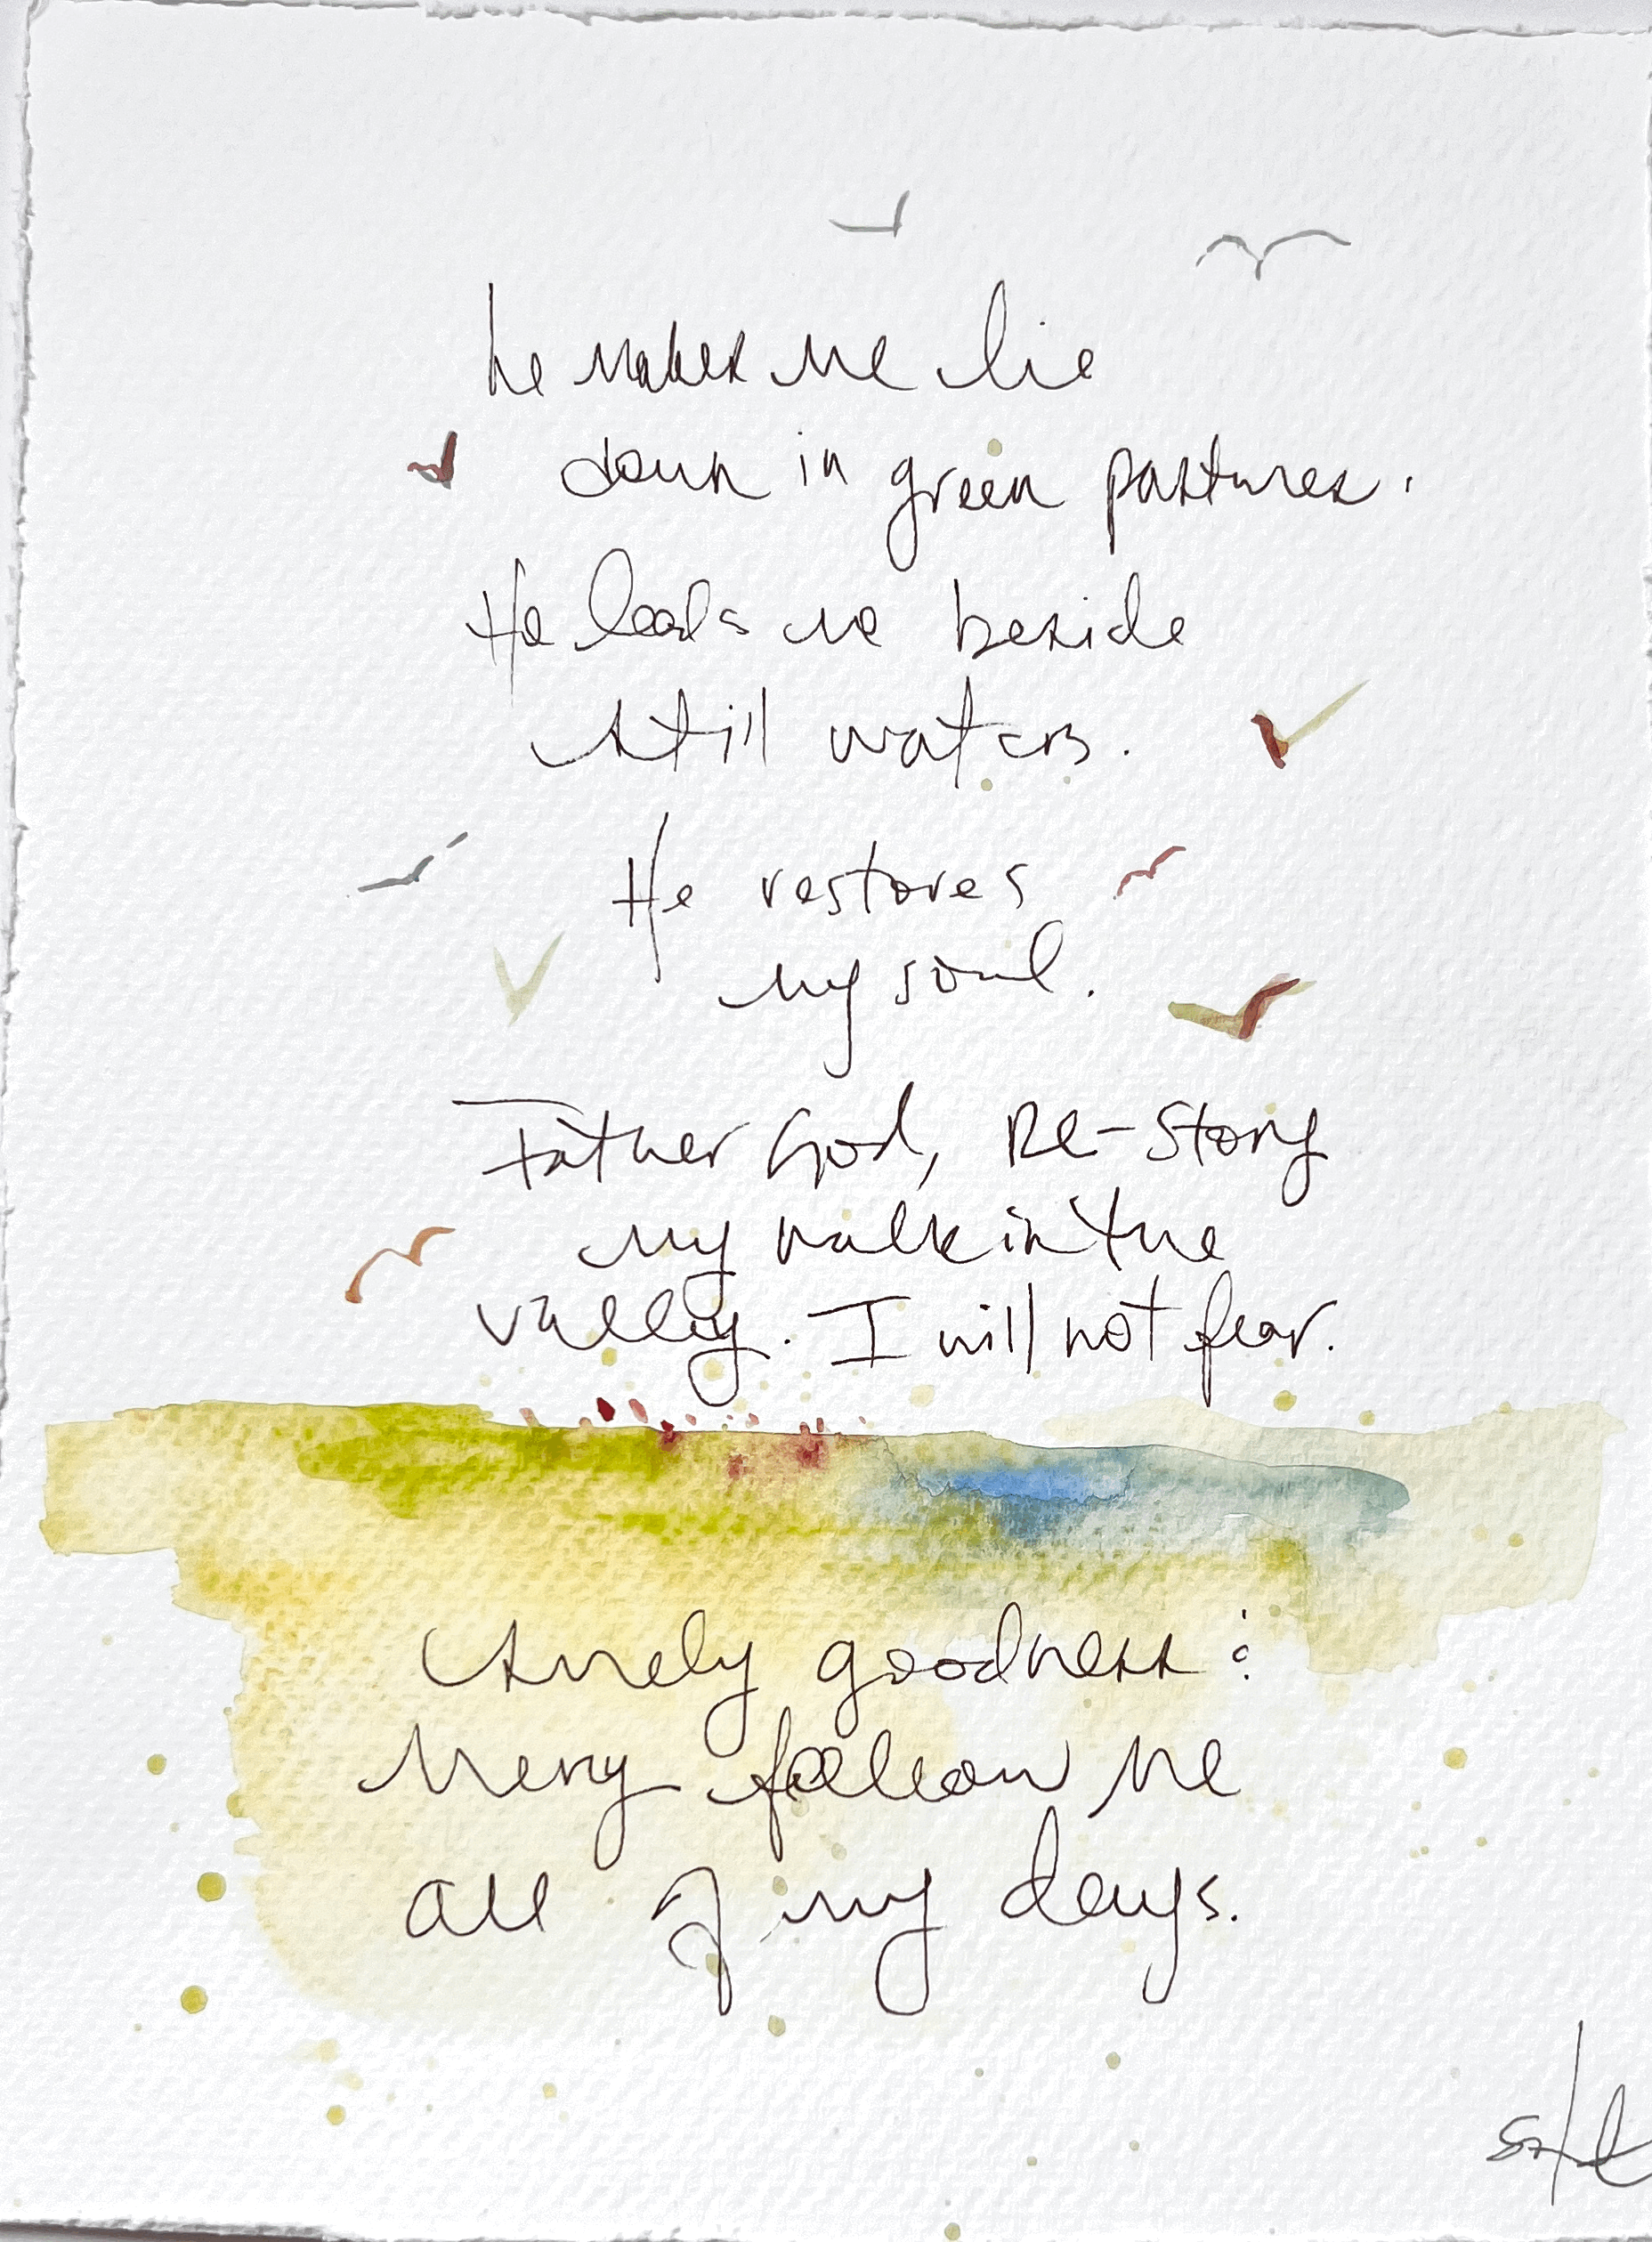 he makes me lie
down in green pastures.
He leads me beside
still waters.
He restores
my soul.
Father God, Re-Story
my walk in the
valley. I will not fear.
Surely goodness &
Mercy follow me
all of my days.